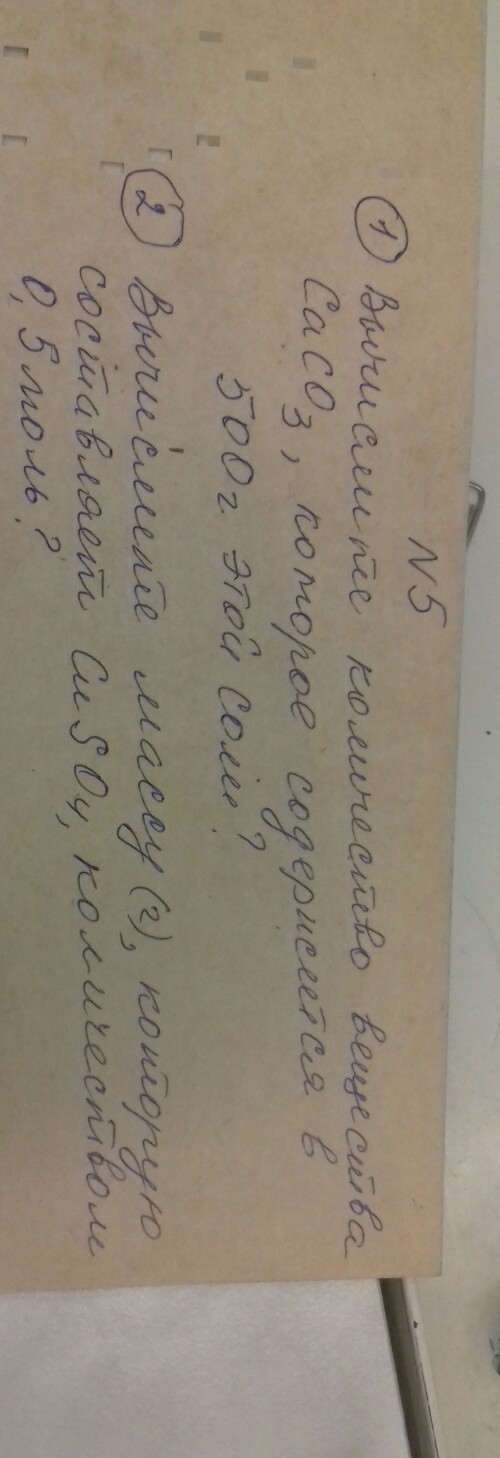 N5
① Вычислите количество вещества
CaCO3, которое содержится в
500г этой соли?
② Вычислите массу (г), которую
составляет CuSO4, колличеством
0,5 моль?